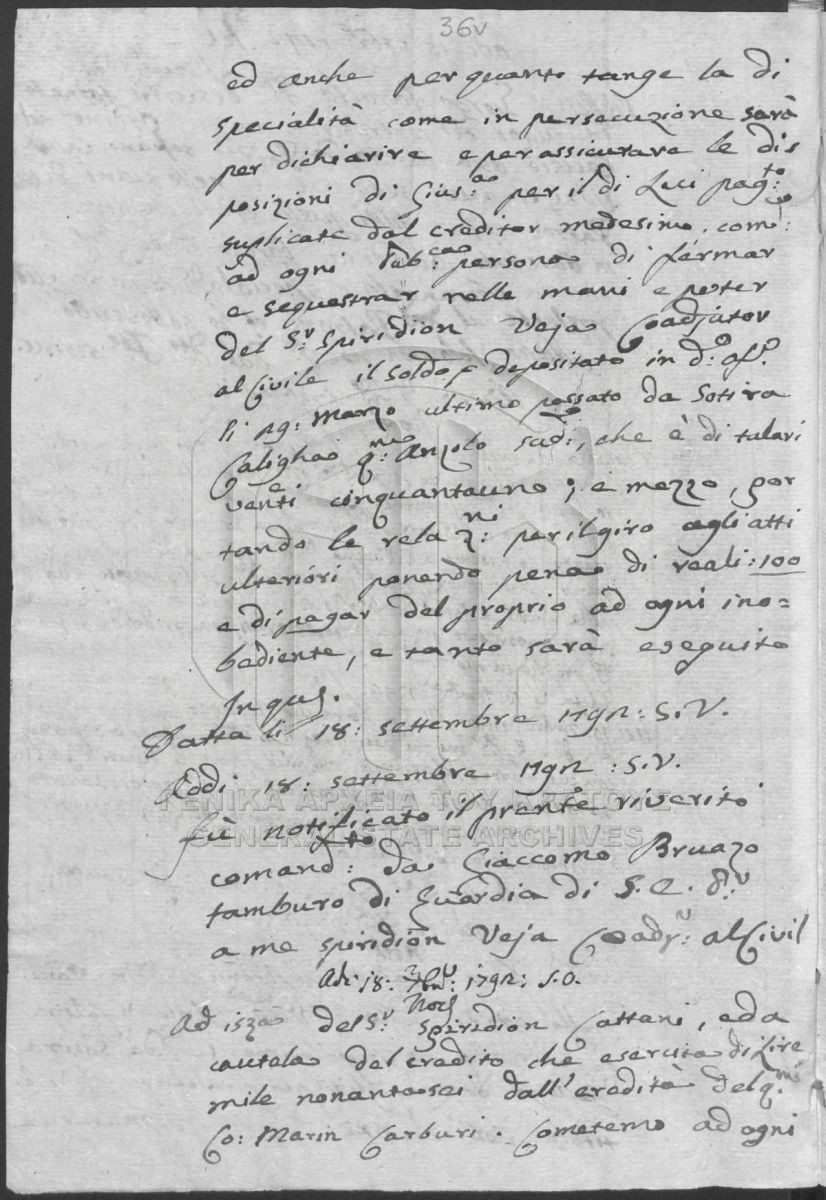 36v
ed anche per quanto tange la di
specialità come in persecuzione sarà
per dichiarire e per assicurare le dis
posizioni di Gius:ª per il di Lui pag:to
suplicate dal creditor medesimo, com:
ad ogni Pub:ca persona di fermar
e sequestrar nelle mani e poter
del S:r Spiridion Veja Coadjutor
al Civile il soldo depositato in d:o off:o
li 19: Marzo ultimo passato da Sotira
Caligha q:m Anzolo sud:o, che è di talari
venti cinquantauno; e mezzo, por
tando le relaz:ni per il giro agli atti
ulteriori ponendo pena di reali: 100
e di pagar del proprio ad ogni ino=
bediente, e tanto sarà eseguito
In quS.
Datta li 18: settembre 1792: S.V.
Addi 18: settembre 1792: S.V.
fù notificato il prente riverito
comand:to da Giaccomo Bruazo
tamburo di Guardia di S. E. P:r
a me Spiridion Veja Coady:r al Civil
Adi: 18: 7bre: 1792: S.O.
Ad isza del S:r Nod Spiridion Cattani, ed a
cautela del credito che esercita di Lire
mile nonantasei dall' eredità del q:m
Co: Marin Carburi. Cometemo ad ogni
ΓΕΝΙΚΑ ΑΡΧΕΙΑ ΤΟΥ ΚΡΑΤΟΥΣ
GENERAL STATE ARCHIVES